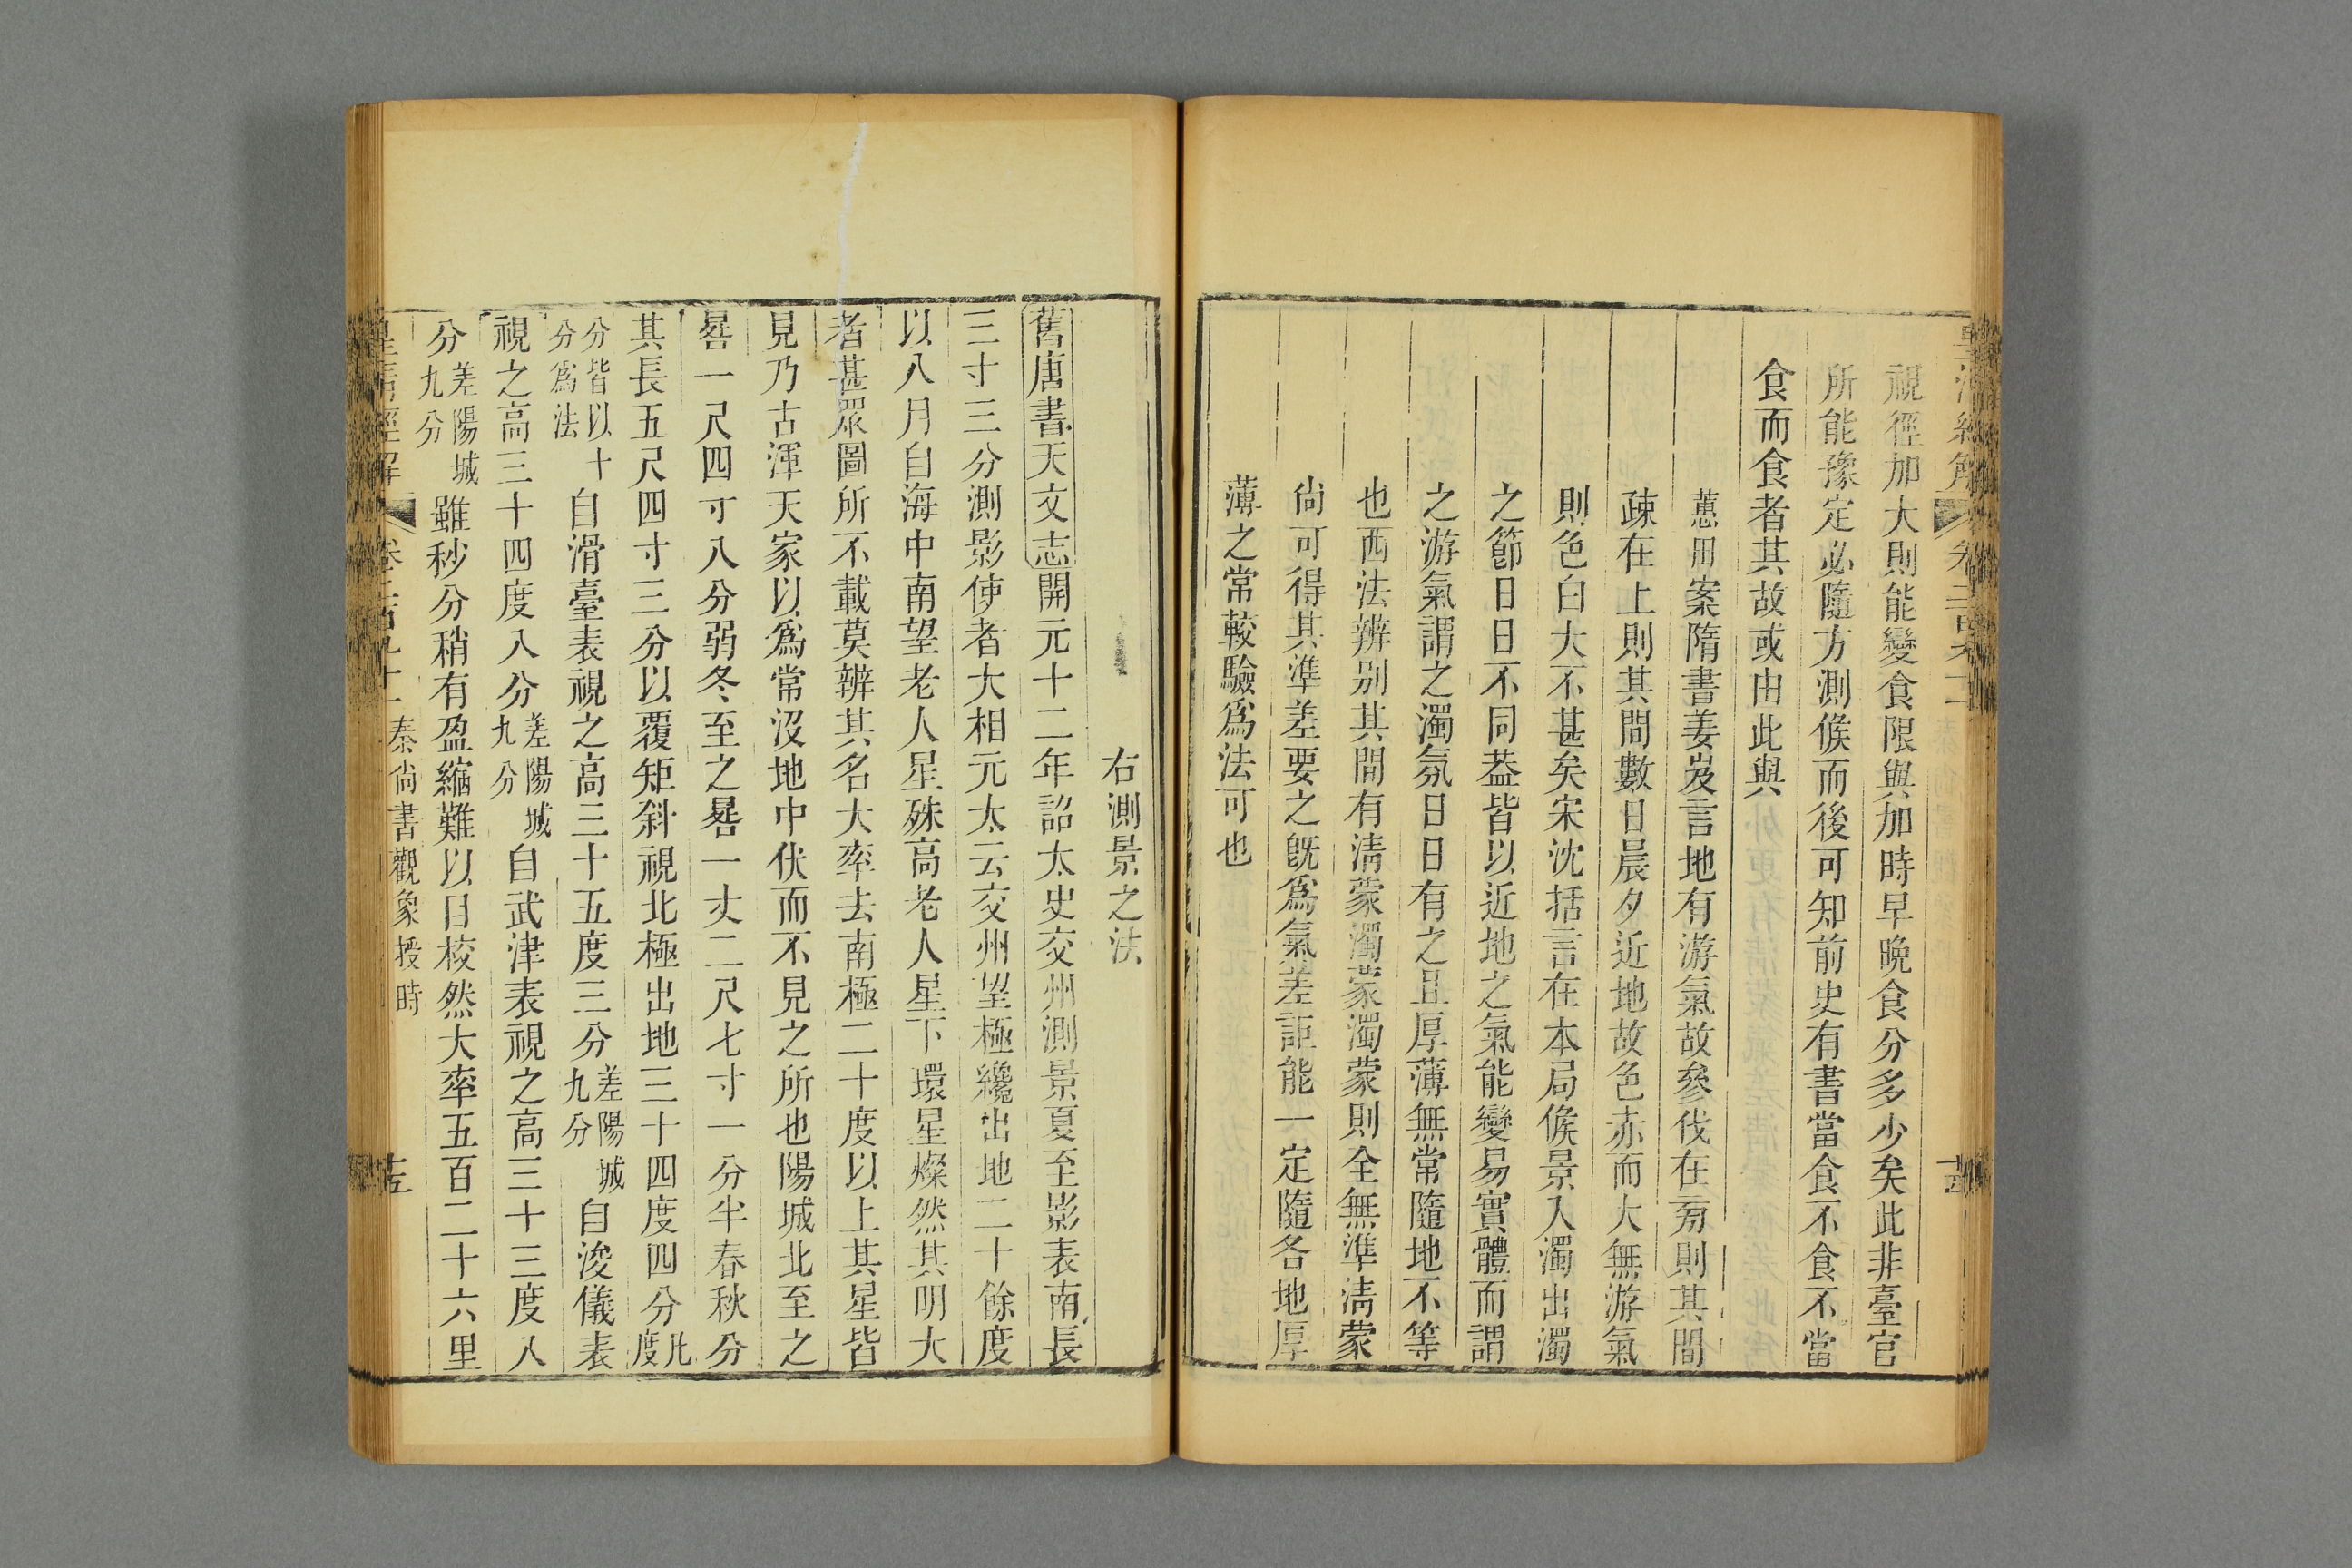 視徑加大則能變食限與加時早晚食分多少矣此非臺官
所能豫定必隨方測候而後可知前史有書當食不食不當
食而食者其故或由此與
蕙田案隋書姜岌言地有游氣故參伐在旁則其間
疎在上則其間數日晨夕近地故色赤而大無游氣
則色白大不甚矣宋沈括言在本局候景入濁出濁
之節日日不同葢皆以近地之氣能變易實體而謂
之游氣謂之濁氛日日有之且厚薄無常隨地不等
也西法辨别其間有淸蒙濁蒙濁蒙則全無準淸蒙
尙可得其準差要之旣爲氣差詎能一定隨各地厚
薄之常較驗爲法可也
右測景之法
舊唐書天文志開元十二年詔太史交州測景夏至影表南長
三寸三分測影使者大相元太云交州望極纔出地二十餘度
以八月自海中南望老人星殊高老人星下環星燦然其明大
者甚眾圖所不載莫辨其名大率去南極二十度以上其星皆
見乃古渾天家以爲常沒地中伏而不見之所也陽城北至之
晷一尺四寸八分弱冬至之晷一丈二尺七寸一分半春秋分
其長五尺四寸三分以覆矩斜視北極出地三十四度四分此度
分皆以十分爲法自滑臺表視之高三十五度三分差陽城九分自浚儀表
視之高三十四度八分差陽城九分自武津表視之高三十三度八
分差陽城九分雖秒分稍有盈縮難以日校然大率五百二十六里
秦尙書觀象授時